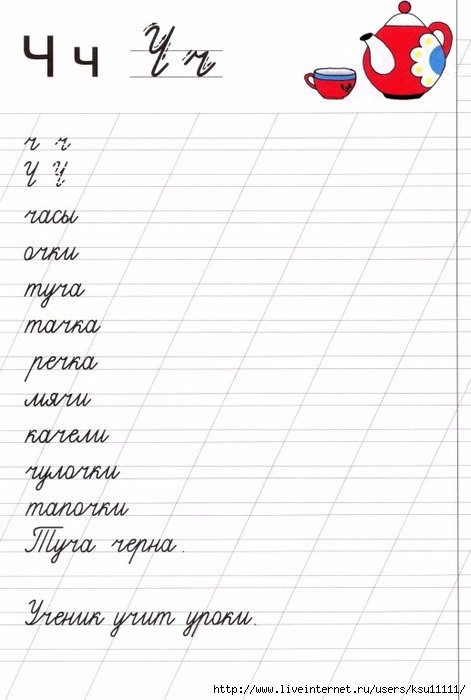 Ч ч Ч ч
ч ч
Ч Ч
часы
очки
туча
тачка
речка
мячи
качели
чулочки
тапочки
Туча черна.
Ученик учит уроки.
http://www.liveinternet.ru/users/ksu11111/